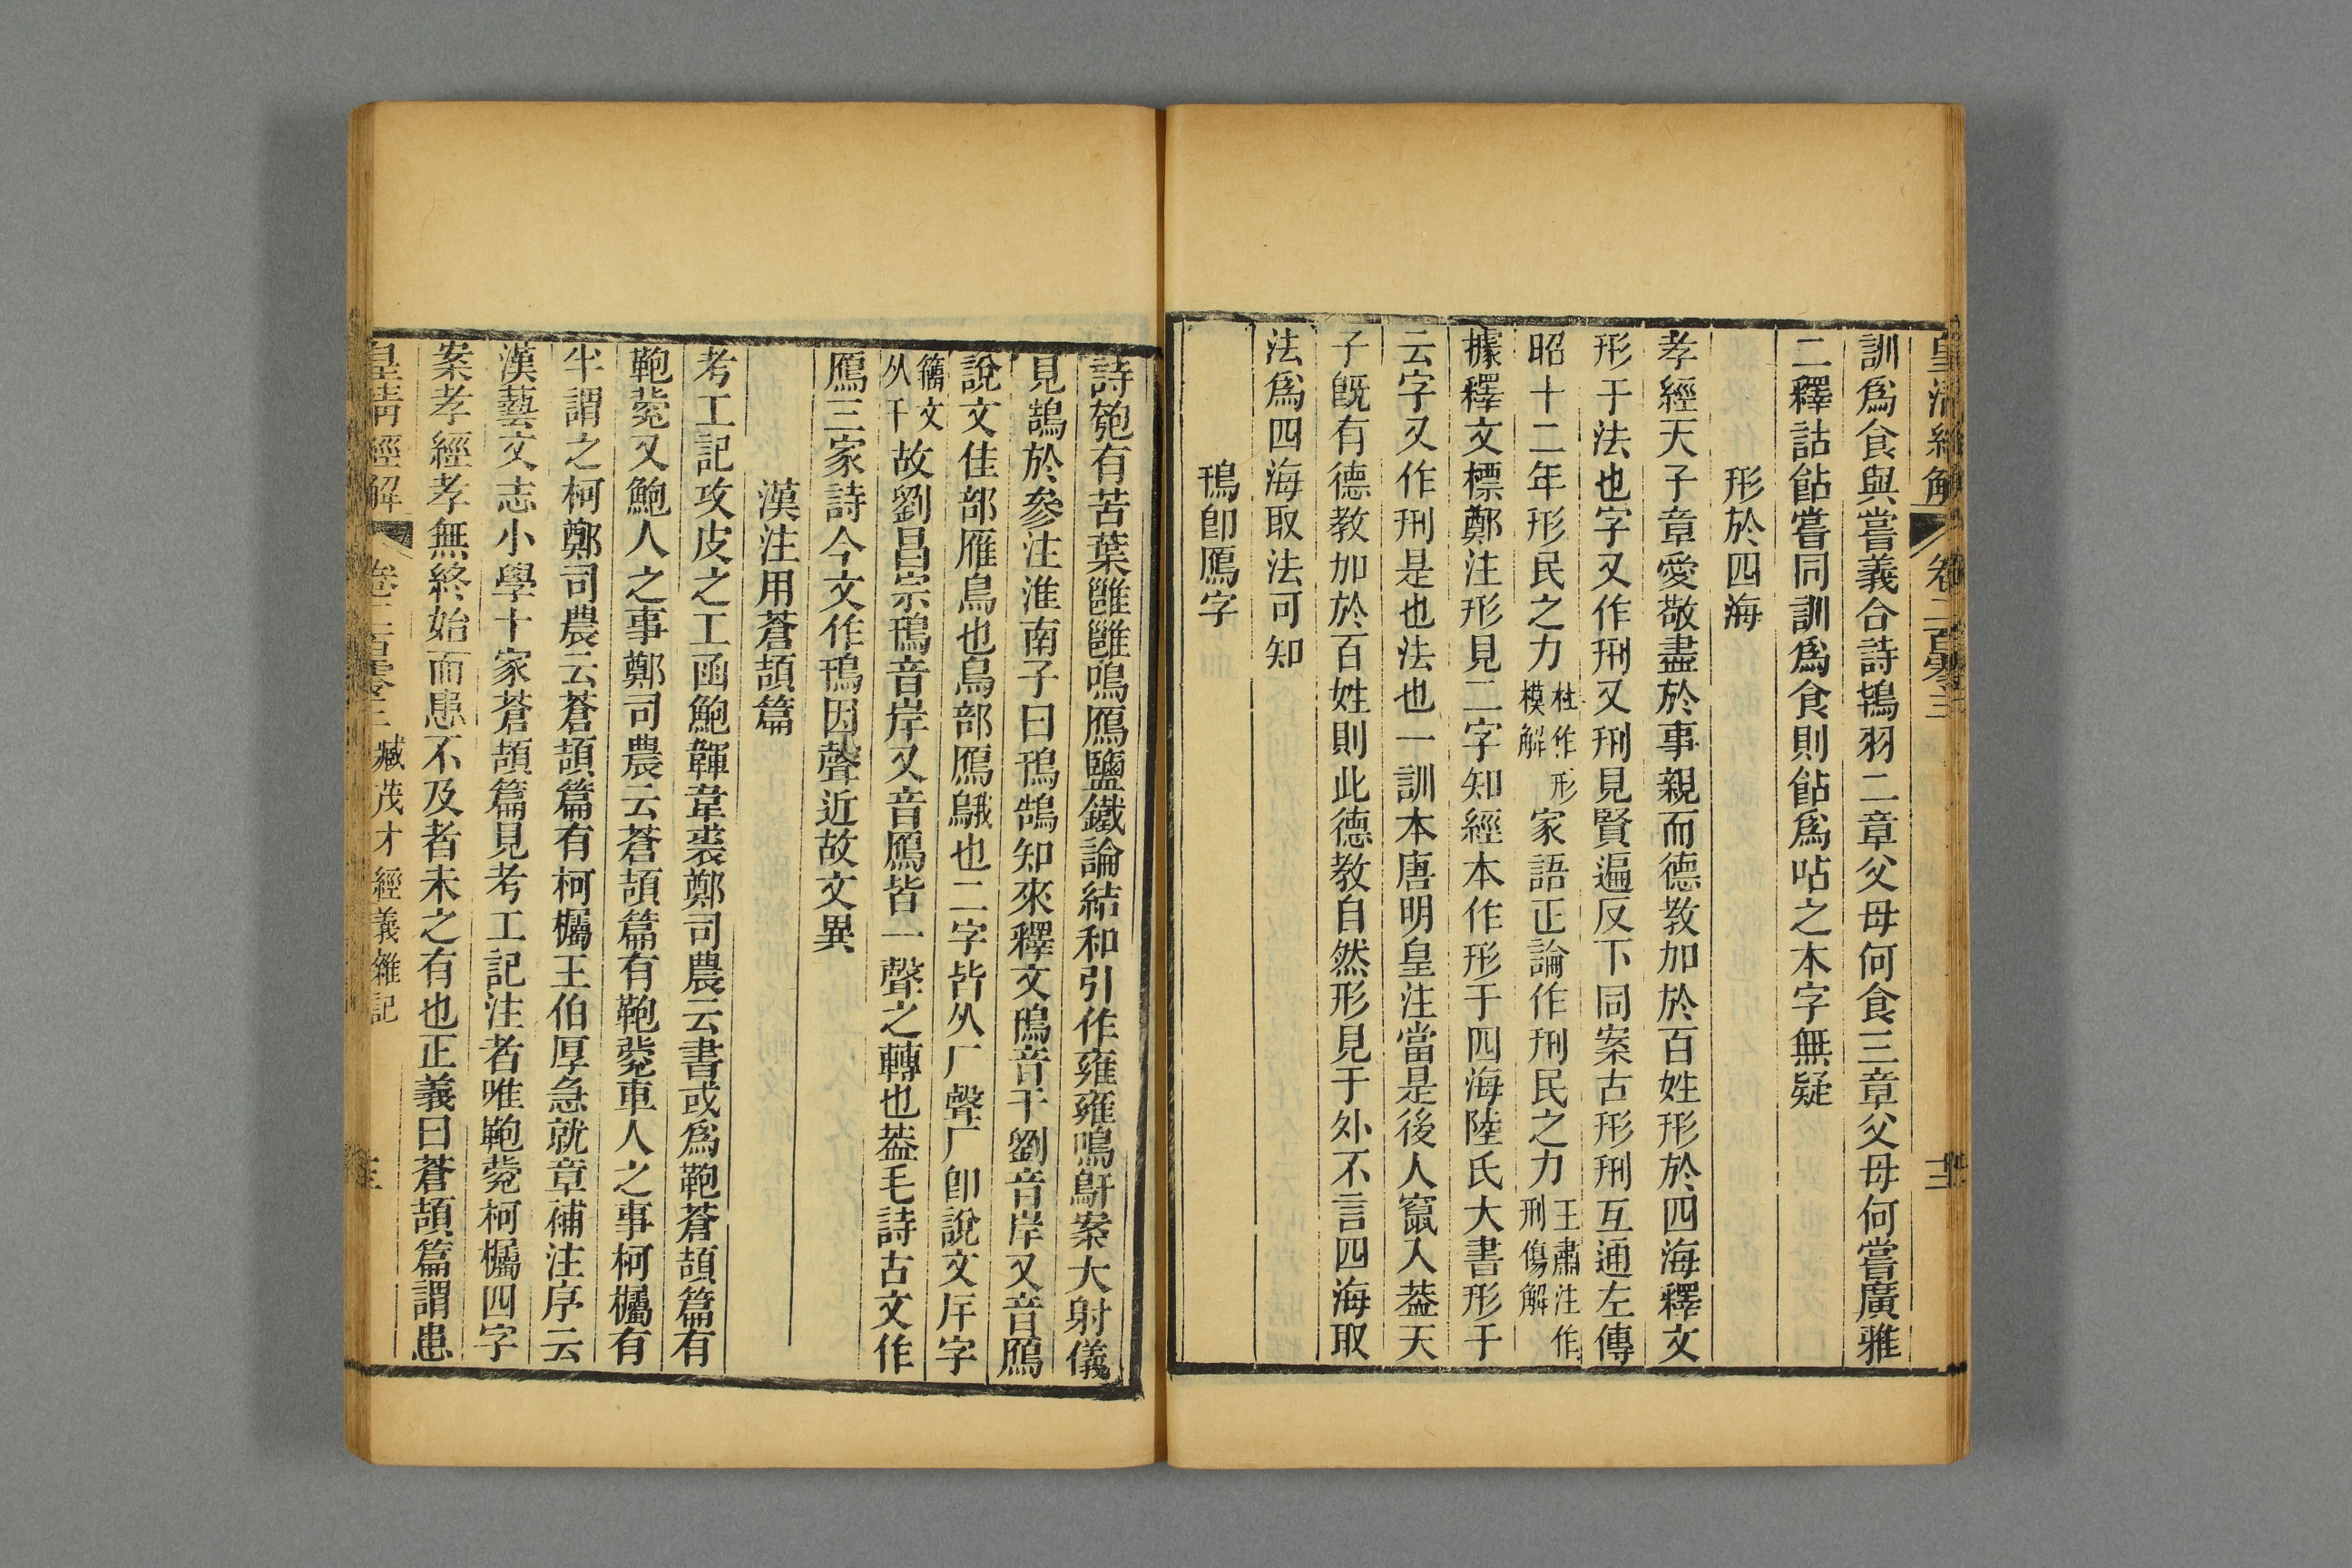 皇清經解 卷二百零三 十三
訓爲食與嘗義合詩鴇羽二章父母何食三章父母何嘗廣雅
二釋詁䬯嘗同訓爲食則䬯爲呫之本字無疑
形於四海
孝經天子章愛敬盡於事親而德教加於百姓形於四海釋文
形于法也字又作刑又刑見賢遍反下同案古形刑互通左傳
昭十二年形民之力杜作形模解家語正論作刑民之力王肅注作刑傷解
據釋文標鄭注形見二字知經本作形于四海陸氏大書形于
云字又作刑是也法也一訓本唐明皇注當是後人竄入葢天
子旣有德教加於百姓則此德教自然形見于外不言四海取
法爲四海取法可知
鳱卽鴈字
詩匏有苦葉雝雝鳴鴈鹽鐵論結和引作雍雍鳴鳱案大射儀
見鵠於參注淮南子曰鳱鵠知來釋文鳱音干劉音岸又音鴈
說文隹部雁鳥也鳥部鴈䳘也二字皆从厂聲厂卽說文厈字
籒文从干故劉昌宗鳱音岸又音鴈皆一聲之轉也葢毛詩古文作
鴈三家詩今文作鳱因聲近故文異
漢注用蒼頡篇
考工記攻皮之工函鮑韗韋裘鄭司農云書或爲鞄蒼頡篇有
鞄㼱又鮑人之事鄭司農云蒼頡篇有鞄㼱車人之事柯欘有
半謂之柯鄭司農云蒼頡篇有柯欘王伯厚急就章補注序云
漢藝文志小學十家蒼頡篇見考工記注者唯鞄㼱柯欘四字
案孝經孝無終始而患不及者未之有也正義曰蒼頡篇謂患
皇清經解 卷二百零三 臧茂才經義雜記